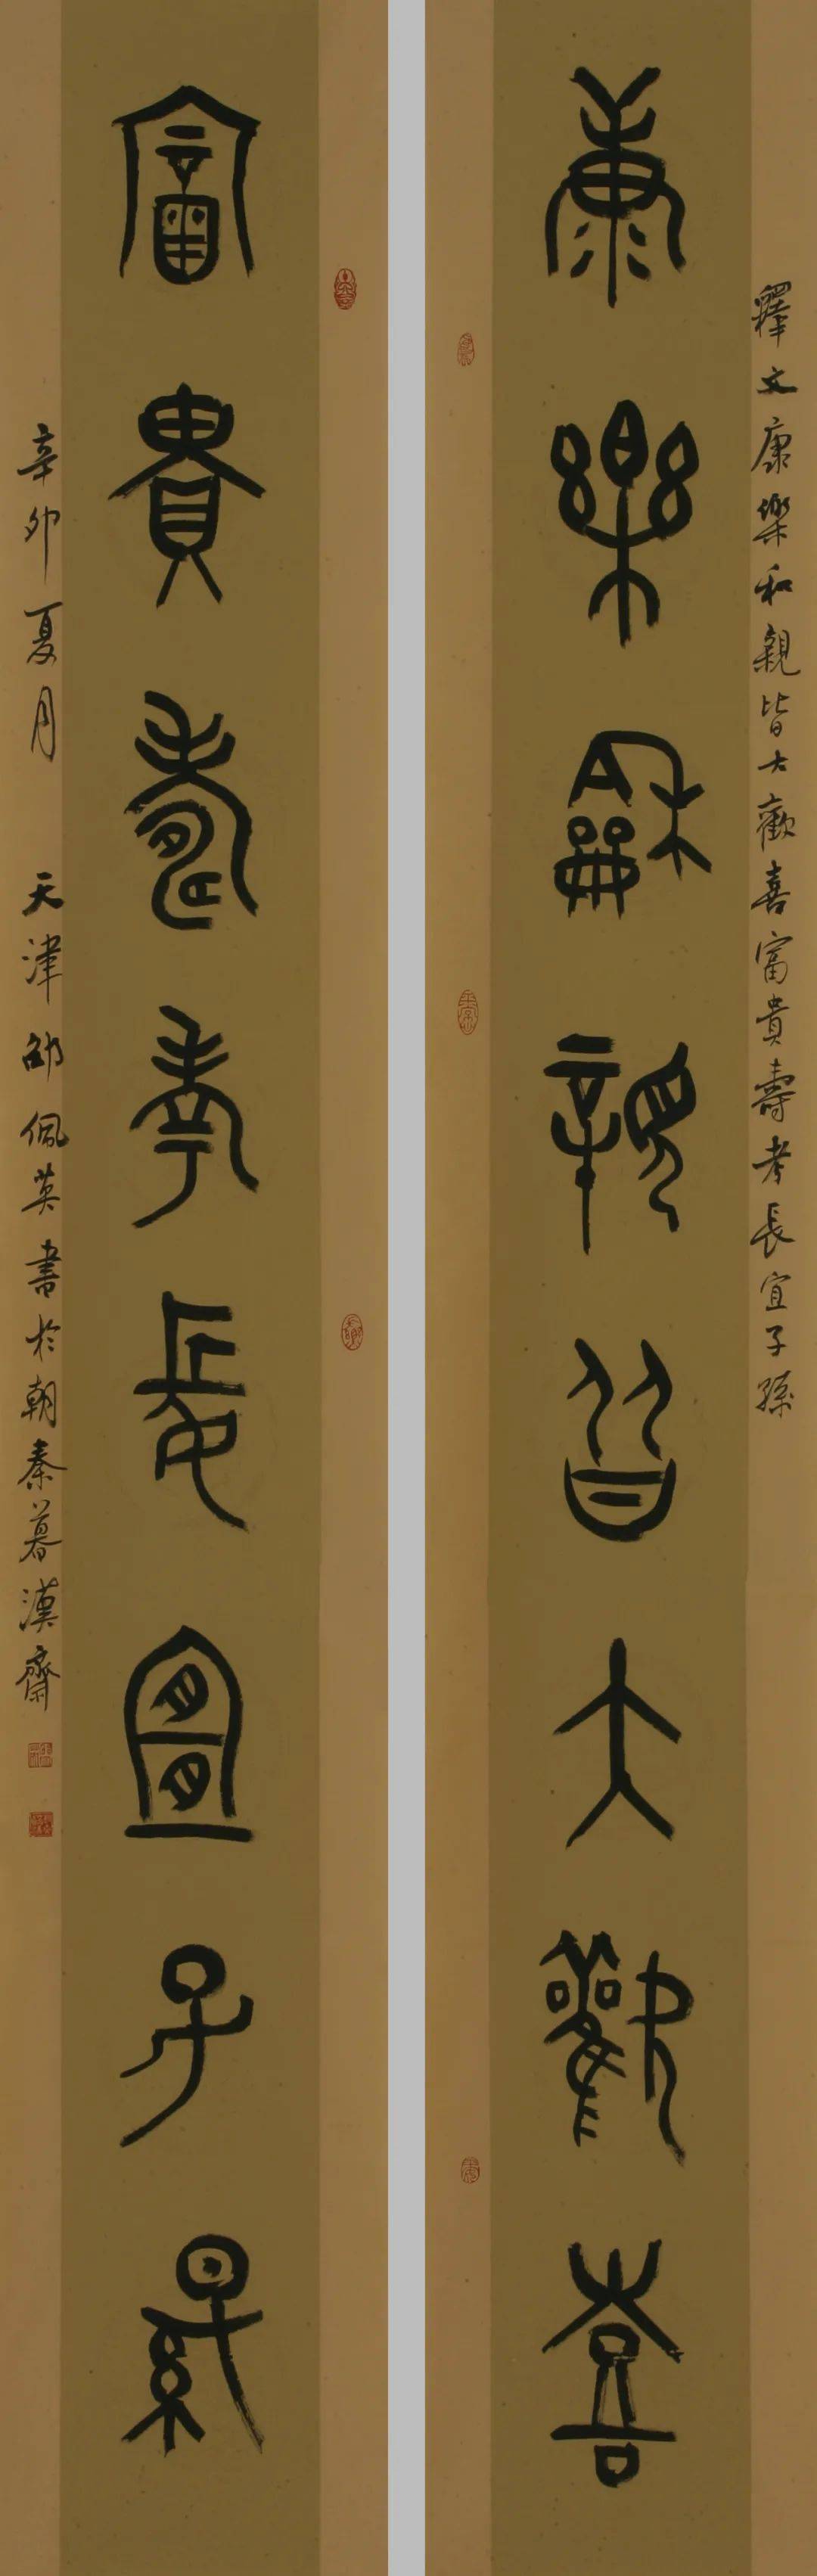 釋文康樂和親皆大歡喜富貴壽考長宜子孫
康樂龢親皆大歡喜
富貴壽考長宜子孫
辛卯夏月 天津邵佩英書於朝秦暮漢齋